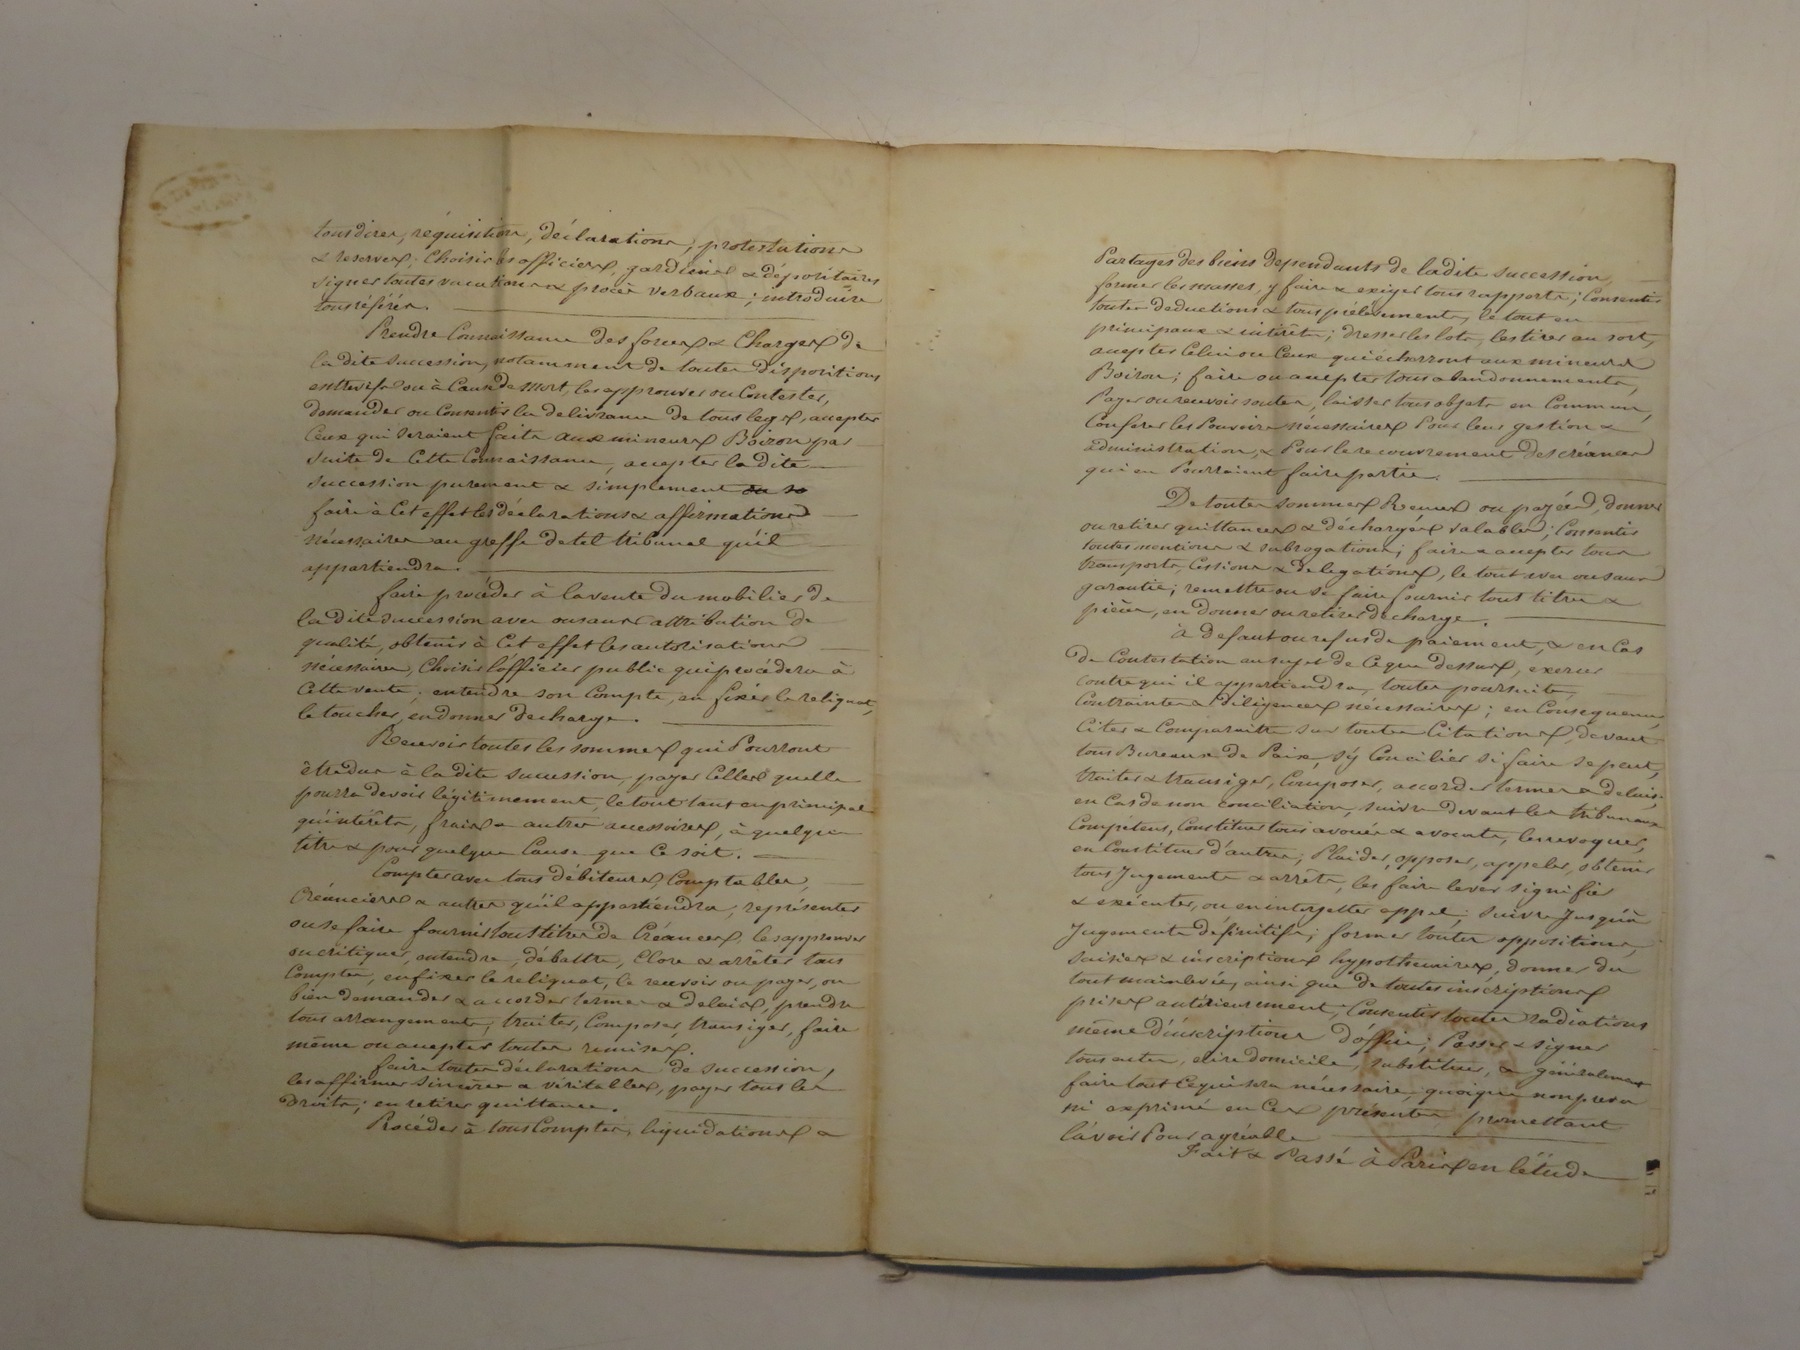 tous dires, réquisitions, déclarations, protestations
& reserves; Choisir les officiers, gardiens & dépositaires
signer toutes vacations & procès verbaux; introduire
tous référés.
Prendre Connaissance des forces & Charges de
la dite succession, notamment de toutes dispositions
entrevifs ou à Cause de mort, les approuver ou Contester,
demander ou Consentir la delivrance de tous legs, accepter
Ceux qui seraient faits aux mineurs Boizon par
suite de Cette Connaissance, accepter la dite
succession purement & simplement ou se
faire à Cet effet les déclarations & affirmations
nécessaires au greffe de tel tribunal qu'il
appartiendra.
faire procéder à la vente du mobilier de
la dite succession avec ou sans attribution de
qualité, obtenir à Cet effet les autorisations
nécessaires, Choisir l'officier public qui procédera à
Cette vente; entendre son Compte, en fixer le reliquat,
le toucher, en donner decharge.
Recevoir toutes les sommes qui Pourront
être dues à la dite succession, payer Celles quelle
pourra devoir légitimement, le tout tant en principal
qu'intérêts, frais & autres accessoires, à quelque
titre & pour quelque Cause que Ce soit.
Compter avec tous débiteurs, Comptables,
Créanciers & autres qu'il appartiendra, représenter
ou se faire fournir tous titres de Créances, les approuver
ou critiquer, entendre, débattre, Clore & arrêter tous
Comptes, en fixer le reliquat, le recevoir ou payer, ou
bien demander & accorder termes & delais, prendre
tous arrangements, traiter, Composer, transiger, faire
même ou accepter toutes remises.
faire toutes déclarations de succession,
les affirmer sincères & véritables, payer tous les
Droits; en retirer quittance.
Procéder à tous Comptes, liquidations &
Partages des biens dependants de la dite succession,
former les masses, y faire & exiger tous rapports; Consentir
toutes deductions & tous prélèvements, le tout en
principaux & intérêts; dresser les lots, les tirer au sort,
accepter Celui ou Ceux qui écherront aux mineurs
Boizon; faire ou accepter tous abandonnements,
Payer ou recevoir soultes, laisser tous objets en Commun,
Conférer les Pouvoirs nécessaires Pour leur gestion &
administration, & Pour le recouvrement des créances
qui en Pourraient faire partie.
De toutes sommes Recues ou payées, donner
ou retirer quittances & décharges valables; Consentir
toutes mentions & subrogations; faire & accepter tous
transports, Cessions & delegations, le tout avec ou sans
garantie; remettre ou se faire fournir tout titres &
pièces, en donner ou retirer decharge.
à defaut ou refus de paiement, & en Cas
de Contestation au sujet de Ceque dessus, exercer
contre qui il appartiendra, toutes poursuites,
Contraintes & Diligences nécessaires; en Consequence
Citer & Comparaitre sur toutes Citations, devant
tous Bureaux de Paix, s'y Concilier si faire se peut,
traiter & transiger, Composer, accorder termes & delais;
en Cas de non conciliation, suivre devant les tribunaux
Compétens, Constituer tous avoués & avocats, les revoquer,
en Constituer d'autres; Plaider, opposer, appeler, obtenir
tous Jugements & arrêts, les faire lever signifier
& exécuter, ou en interjetter appel; suivre Jusqu'à
Jugements définitifs; former toutes oppositions,
saisies & inscriptions hypothecaires, donner du
tout mainlevée, ainsi que de toutes inscriptions
prises antérieurement; Consentir toutes radiations
même d'inscriptions d'office; Passer & signer
tous actes, elire domicile, substituer, & généralement
faire tout Cequi sera nécessaire, quoique non prévu
ni exprimé en Ces présentes, promettant
l'avoir Pour agréable
Fait & Passé à Paris, en l'étude